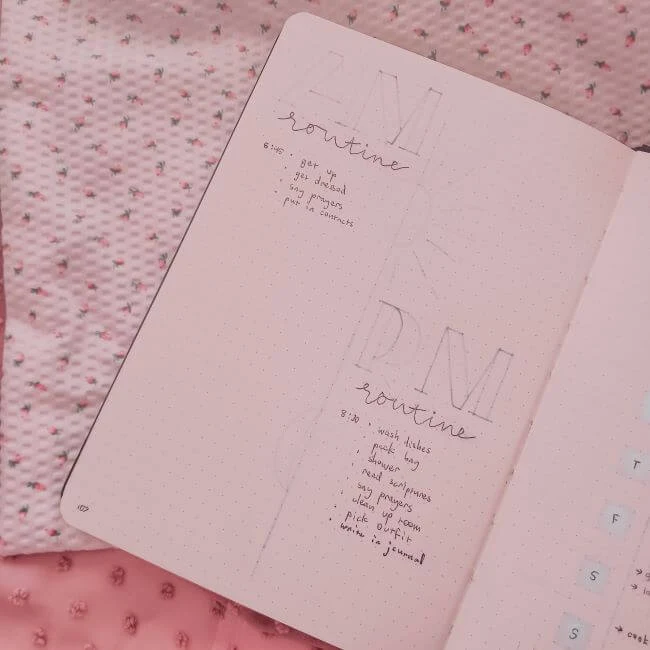 AM
routine
6:45 • get up
• get dressed
• say prayers
• put in contacts
PM
routine
8:30 • wash dishes
• pack bag
• shower
• read scriptures
• say prayers
• clean up room
• pick outfit
• write in journal
107
T
F
S
→
→
S
→ cook